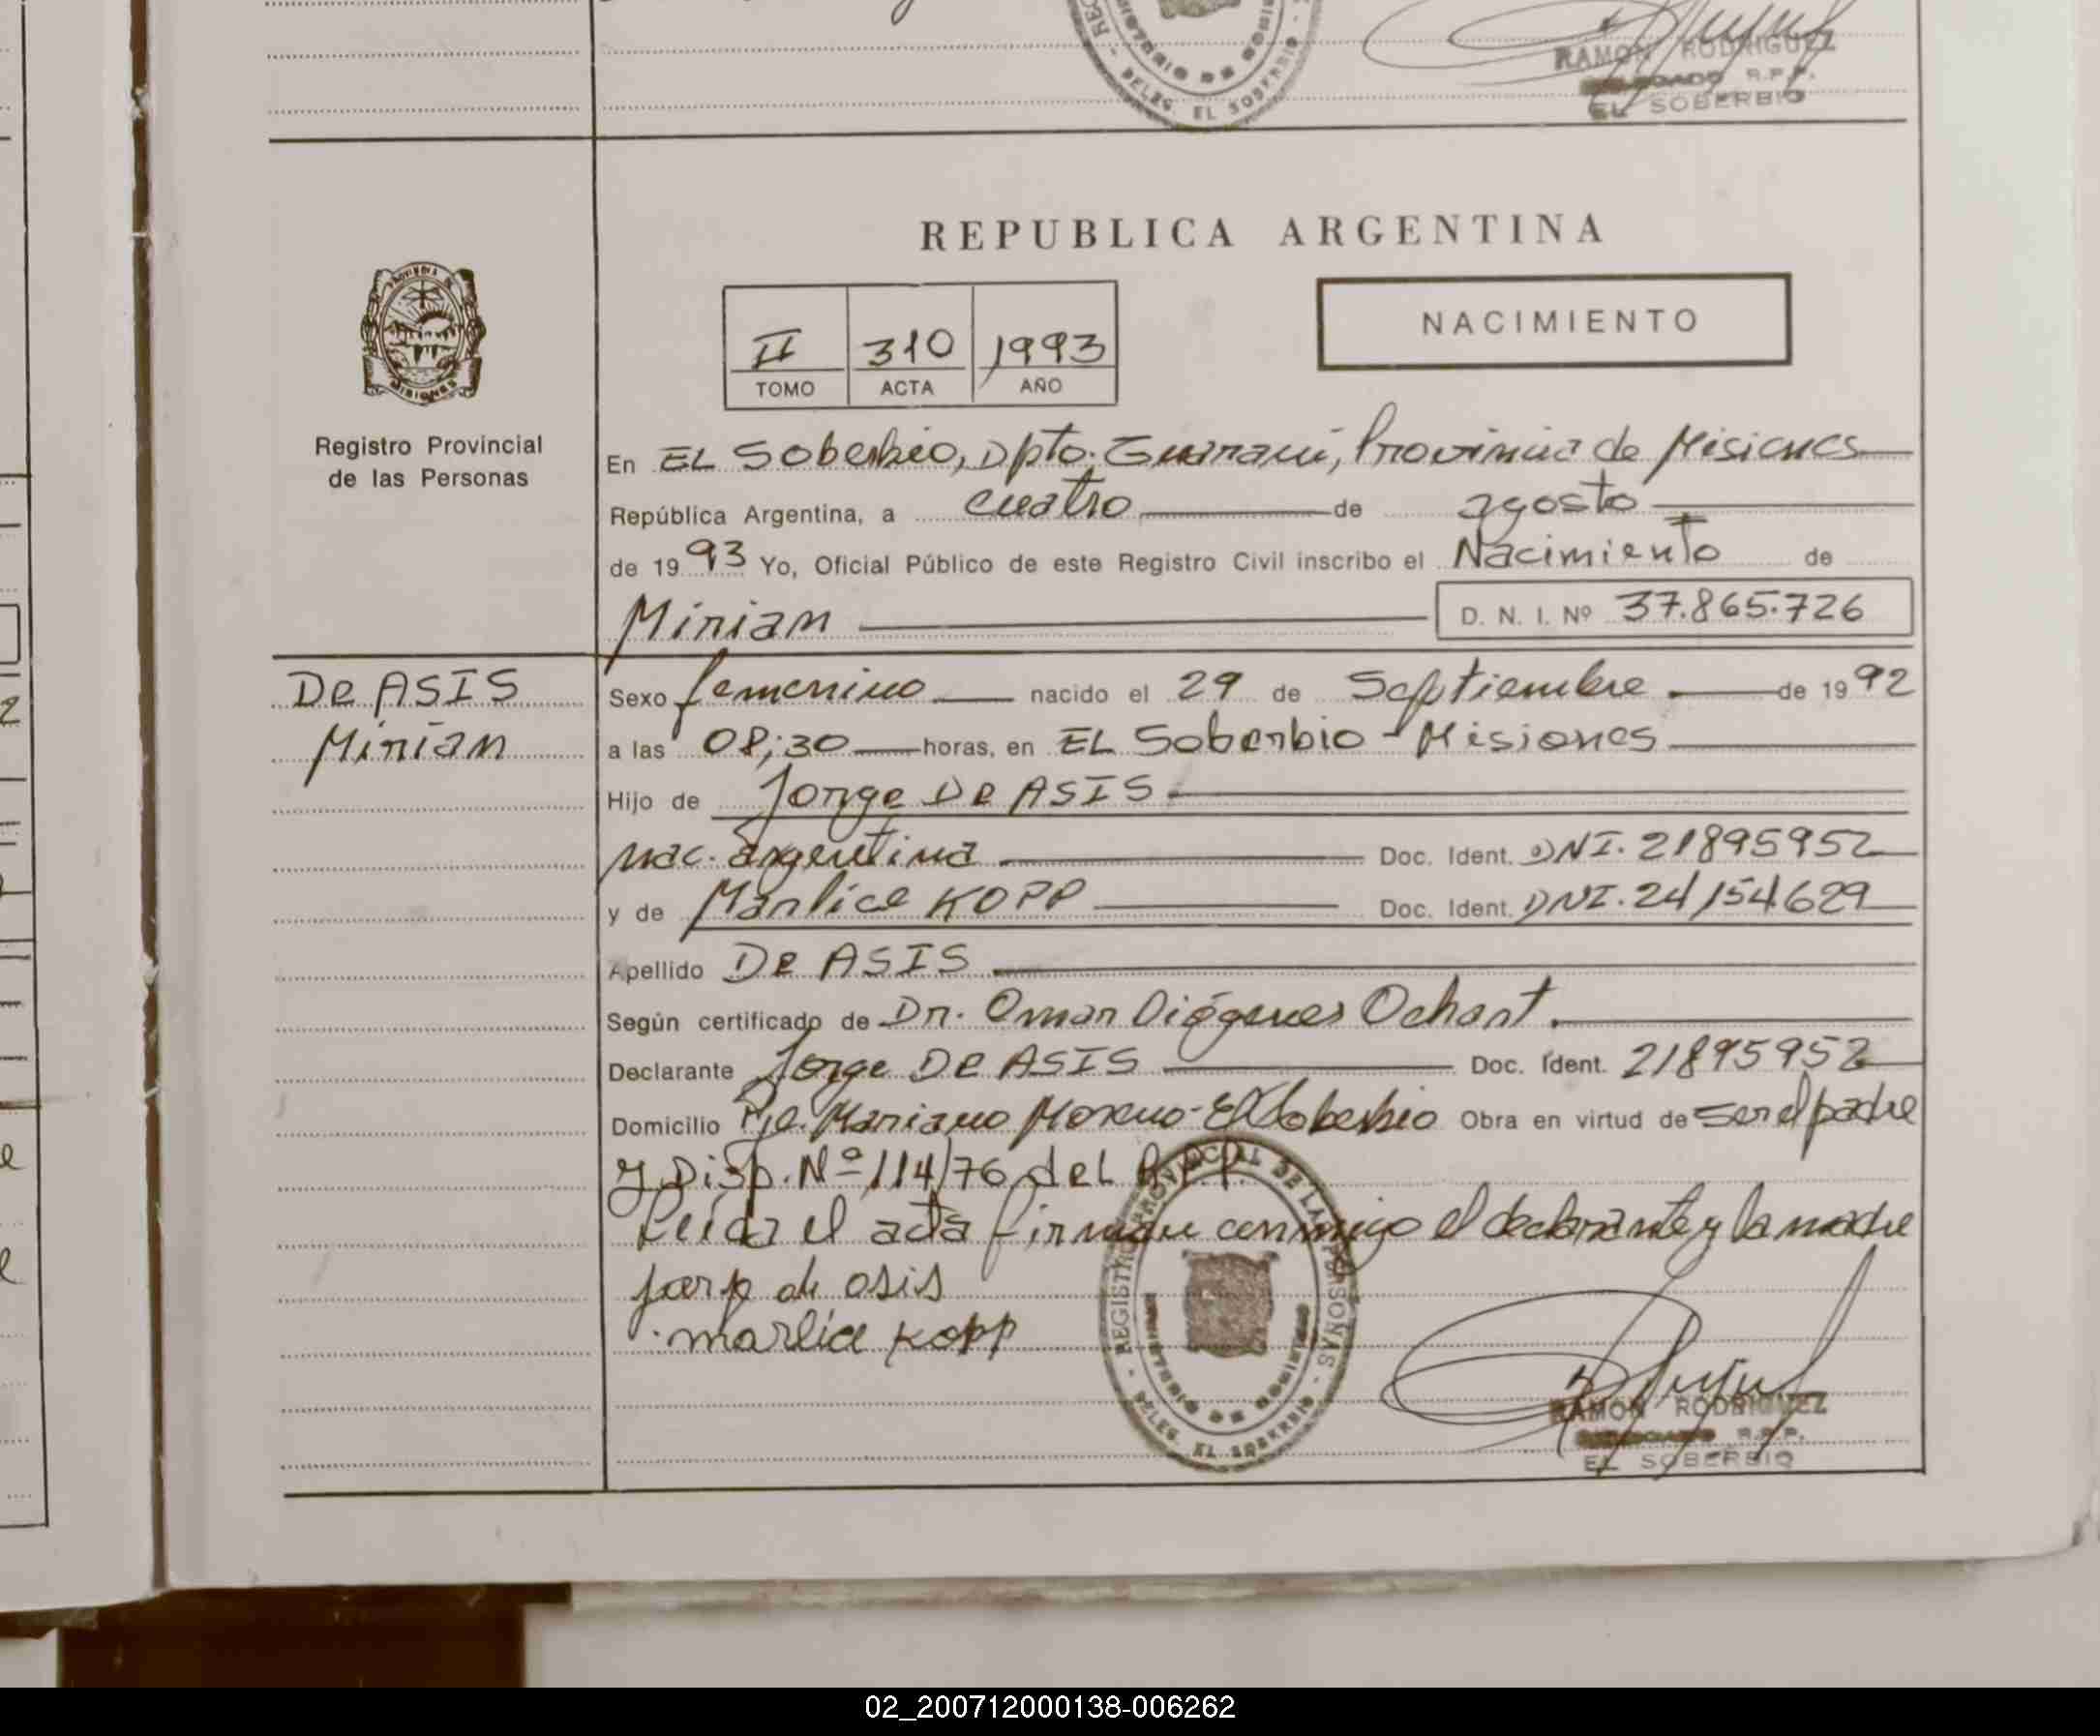 RAMON RODRIGUEZ
R.P.P.
EL SOBERBIO
DELEG. EL SOBERBIO
REPUBLICA ARGENTINA
NACIMIENTO
II 310 1993
TOMO ACTA AÑO
Registro Provincial
de las Personas
En EL Soberbio, Dpto. Guaraní, Provincia de Misiones
República Argentina, a cuatro de agosto
de 1993 Yo, Oficial Público de este Registro Civil inscribo el Nacimiento de
Miriam D. N. I. Nº 37.865.726
De ASIS
Miriam
Sexo femenino nacido el 29 de Septiembre de 1992
a las 08;30 horas, en EL Soberbio - Misiones
Hijo de Jorge De ASIS
nac. argentina Doc. Ident. DNI. 21895952
y de Marlice KOPP Doc. Ident. DNI. 24154629
Apellido De ASIS
Según certificado de Dr. Omar Diógenes Ochart.
Declarante Jorge De ASIS Doc. Ident. 21895952
Domicilio Pje. Mariano Moreno - El Soberbio Obra en virtud de ser el padre
y Disp. Nº 114/76 del R.P.P.
Leída el acta firman conmigo el declarante y la madre
jorge de asis
marlice kopp
REGISTRO PROVINCIAL DE LAS PERSONAS
MINISTERIO DE GOBIERNO
DELEG. EL SOBERBIO
RAMON RODRIGUEZ
R.P.P.
EL SOBERBIO
02_200712000138-006262